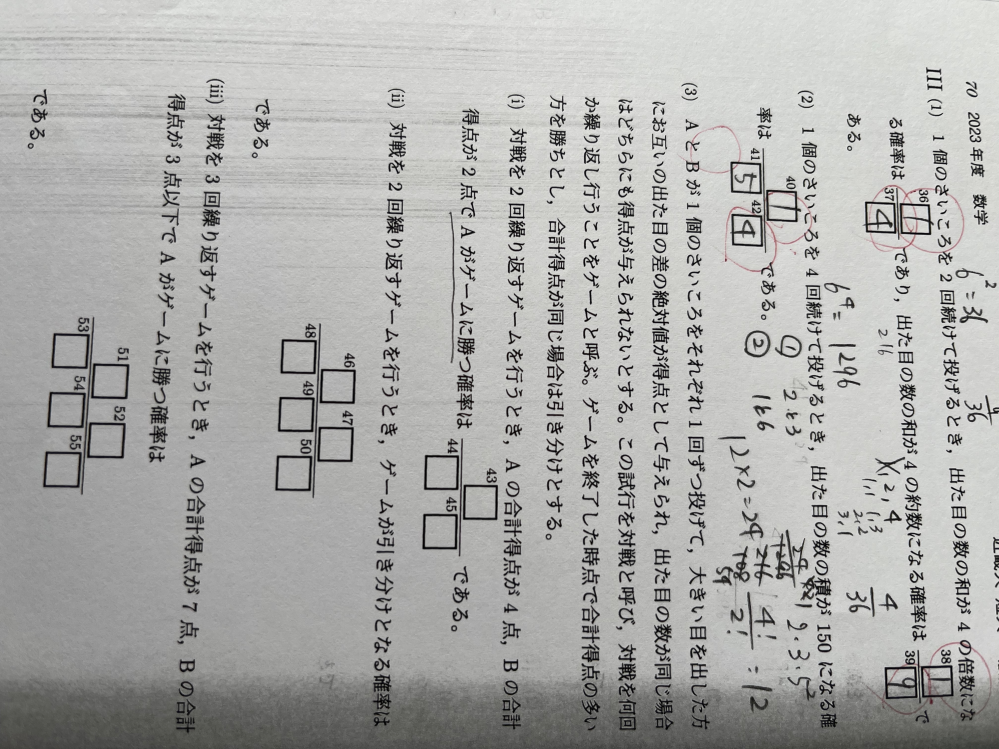 70 2023年度 数学
III (1) 1個のさいころを2回続けて投げるとき，出た目の数の和が4の倍数にな
る確率は 36 1 / 37 4 であり，出た目の数の和が4の約数になる確率は 38 1 / 39 9 で
ある。
6² = 36
9/36
216
1, 2, 4
1,1
1,3
2,2
3,1
4/36
(2) 1個のさいころを4回続けて投げるとき，出た目の数の積が150になる確
率は 40 1 / 41 5 42 4 である。
6⁴ = 1296
① 2 5 3
② 1 6 6
2·3·5²
12×2=24
4!/2! = 12
54
(3) AとBが1個のさいころをそれぞれ1回ずつ投げて，大きい目を出した方
にお互いの出た目の差の絶対値が得点として与えられ，出た目の数が同じ場合
はどちらにも得点が与えられないとする。この試行を対戦と呼び，対戦を何回
か繰り返し行うことをゲームと呼ぶ。ゲームを終了した時点で合計得点の多い
方を勝ちとし，合計得点が同じ場合は引き分けとする。
(i) 対戦を2回繰り返すゲームを行うとき，Aの合計得点が4点，Bの合計
得点が2点でAがゲームに勝つ確率は 43 / 44 45 である。
(ii) 対戦を2回繰り返すゲームを行うとき，ゲームが引き分けとなる確率は
46 47 / 48 49 50
である。
(iii) 対戦を3回繰り返すゲームを行うとき，Aの合計得点が7点，Bの合計
得点が3点以下でAがゲームに勝つ確率は
51 52 / 53 54 55
である。